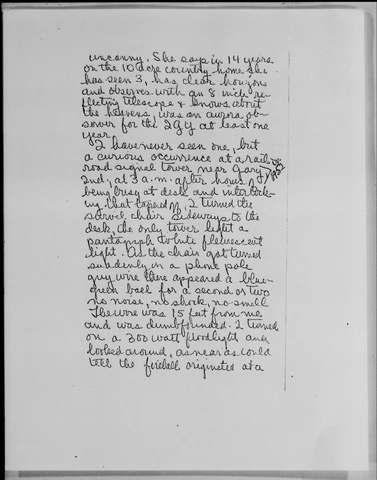 uncanny. She says in 14 years
on the 10 acre country home she
has seen 3, has clear horizons
and observes with an 8 inch re-
flecting telescope & knows about
the heavens, was an aurora ob-
server for the IGY at least one
year.
I have never seen one, but
a curious occurrence at a rail-
road signal tower near Gary
Ind., at 3 a.m. after hours of
being busy at desk and interlock-
ing that tapered off, I turned the
swivel chair sideways to the
desk, the only tower light a
pantograph white fluorescent
light. As the chair got turned
suddenly in a phone pole
guy wire there appeared a blue-
green ball for a second or two
no noise, no shock, no smell
The wire was 15 feet from me
and was dumbfounded. I turned
on a 300 watt floodlight and
looked around, as near as could
tell the fireball originated at a